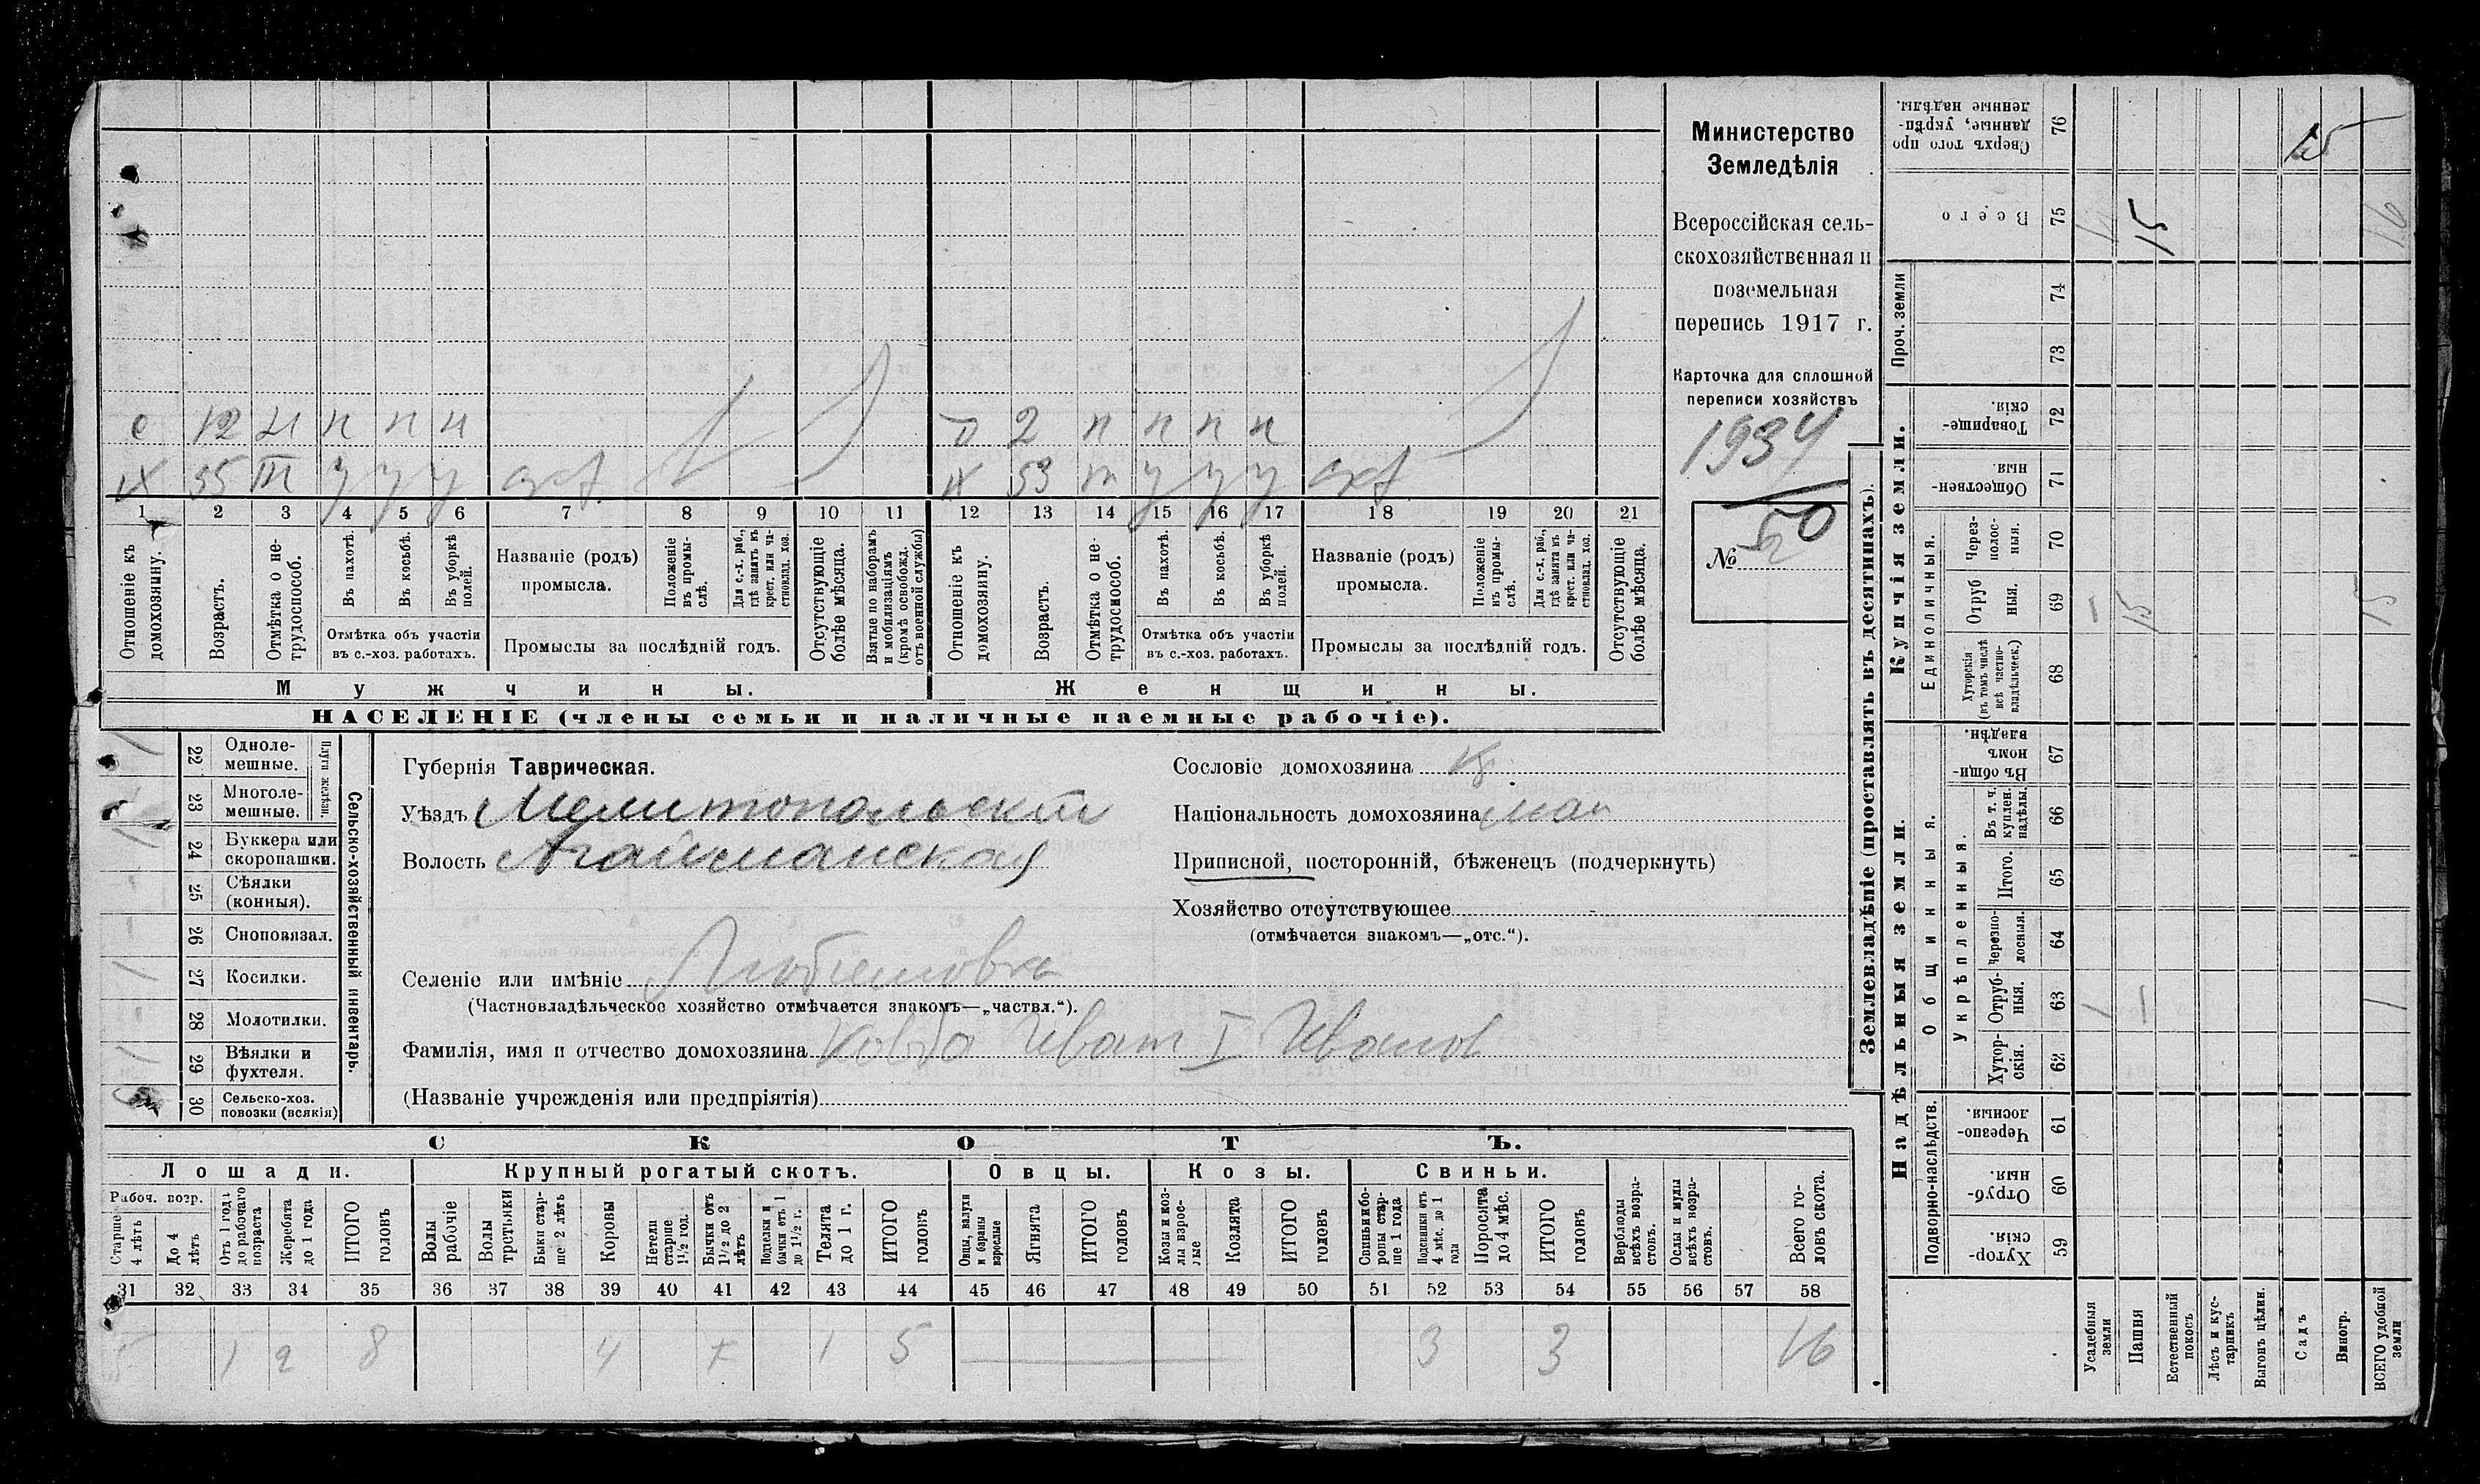 Министерство
Земледѣлія
Всероссійская сель-
скохозяйственная и
поземельная
перепись 1917 г.
Карточка для сплошной
переписи хозяйствъ
1934
№ 50
с 12 н п п н
2 п п п п
55 т у у у
53 т у у у
1 2 3 4 5 6 7 8 9 10 11 12 13 14 15 16 17 18 19 20 21
Отношеніе къ домохозяину.
Возрастъ.
Отмѣтка о не-трудоспособ.
Въ пахотѣ.
Въ косьбѣ.
Въ уборкѣ полей.
Отмѣтка объ участіи
въ с.-хоз. работахъ.
Названіе (родъ)
промысла.
Положеніе въ промы-слѣ.
Для с.-х. раб., гдѣ занятъ въ крест. или ча-стновлад. хоз.
Промыслы за послѣдній годъ.
Отсутствующіе болѣе мѣсяца.
Взятые по наборамъ и мобилизаціямъ (кромѣ освобожд. отъ военной службы)
Отношеніе къ домохозяину.
Возрастъ.
Отмѣтка о не-трудоспособ.
Въ пахотѣ.
Въ косьбѣ.
Въ уборкѣ полей.
Отмѣтка объ участіи
въ с.-хоз. работахъ.
Названіе (родъ)
промысла.
Положеніе въ промы-слѣ.
Для с.-х. раб., гдѣ занята въ крест. или ча-стновлад. хоз.
Промыслы за послѣдній годъ.
Отсутствующіе болѣе мѣсяца.
Мужчины.
Женщины.
НАСЕЛЕНІЕ (члены семьи и наличные наемные рабочіе).
Сельско-хозяйственный инвентарь.
Плуги желѣзн.
22 Одноле-мешные.
23 Многоле-мешные.
24 Буккера или скоропашки.
25 Сѣялки (конныя).
26 Сноповязал.
27 Косилки.
28 Молотилки.
29 Вѣялки и фухтеля.
30 Сельско-хоз. повозки (всякія)
Губернія Таврическая.
Уѣздъ Мелитопольскій
Волость Агайманская
Селеніе или имѣніе Любимовка
(Частновладѣльческое хозяйство отмѣчается знакомъ—„частвл.“).
Фамилія, имя и отчество домохозяина Ковба Иван I Иванов
(Названіе учрежденія или предпріятія)
Сословіе домохозяина кр.
Національность домохозяина мал
Приписной, посторонній, бѣженецъ (подчеркнуть)
Хозяйство отсутствующее -
(отмѣчается знакомъ—„отс.“).
СКОТЪ.
Лошади.
Крупный рогатый скотъ.
Овцы.
Козы.
Свиньи.
Рабоч. возр.
Старше 4 лѣтъ
До 4 лѣтъ
Отъ 1 года до рабочаго возраста
Жеребята до 1 года
ИТОГО головъ
Волы рабочіе
Волы третьяки
Быки стар-ше 2 лѣтъ
Коровы
Нетели старше 1½ год.
Бычки отъ 1½ до 2 лѣтъ
Подтелки и бычки отъ 1 до 1½ г.
Телята до 1 г.
ИТОГО головъ
Овцы, валухи и бараны взрослые
Ягнята
ИТОГО головъ
Козы и коз-лы взрос-лые
Козлята
ИТОГО головъ
Свиньи бо-ровы стар-ше 1 года
Подсвинки отъ 4 мѣс. до 1 года
Поросята до 4 мѣс.
ИТОГО головъ
Верблюды всѣхъ возра-стовъ.
Ослы и мулы всѣхъ возра-стовъ.
Всего го-ловъ скота.
31 32 33 34 35 36 37 38 39 40 41 42 43 44 45 46 47 48 49 50 51 52 53 54 55 56 57 58
5 1 2 8 4 1 5 3 3 16
Землевладѣніе (проставлять въ десятинахъ).
Купчія земли.
Надѣльныя земли.
Сверхъ того про-данные, укрѣп-ленные надѣлы. 76
Всего 75
Проч. земли 74 73
Товарище-скія. 72
Обществен-ныя. 71
Единоличныя.
Через-полос-ныя. 70
Отруб-ныя. 69
Хуторскія (въ томъ числѣ всѣ частно-владѣльческ.) 68
Общинныя.
Въ общин-номъ владѣн. 67
Укрѣпленныя.
Въ т. ч. куплен. надѣлы. 66
Итого. 65
Черезпо-лосныя. 64
Отруб-ныя. 63
Хутор-скія. 62
Подворно-наслѣдств.
Черезпо-лосныя. 61
Отруб-ныя. 60
Хутор-скія. 59
Усадебныя земли
Пашня
Естественный покосъ
Лѣсъ и кус-тарникъ
Выгонъ цѣлин.
Садъ
Виногр.
ВСЕГО удобной земли
15
15
16
15
15
1
1